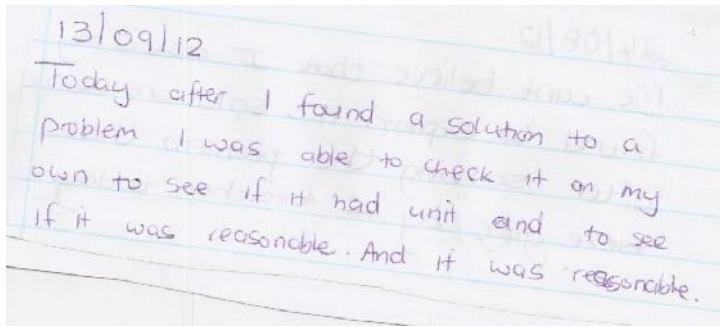 13/09/12
Today after I found a solution to a
problem I was able to check it on my
own to see if it had unit and to see
if it was reasonable. And it was reasonable.